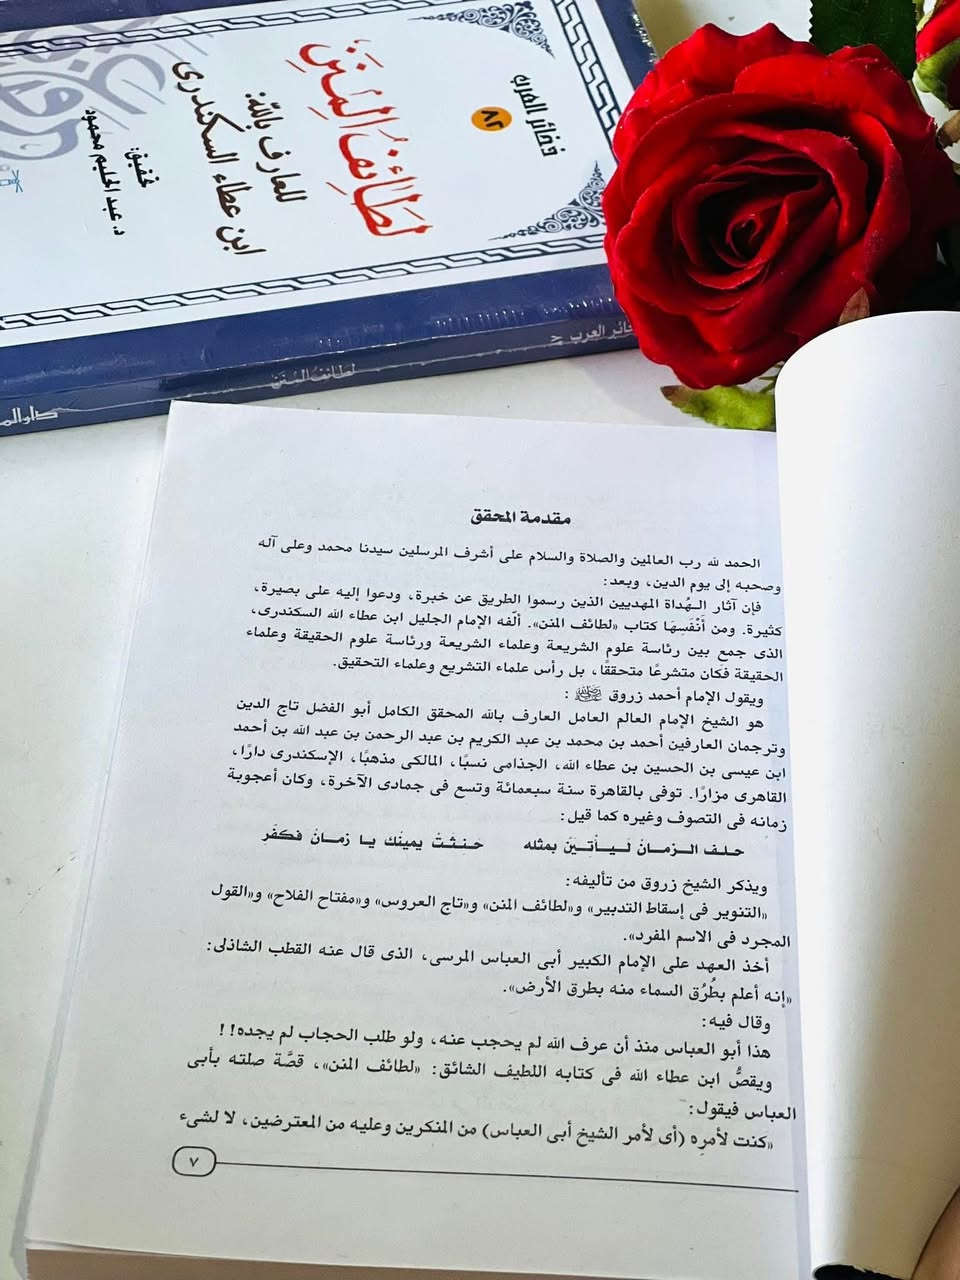 ذخائر العرب
٨٢
لَطَائِفُ المِنَنِ
للعارف بالله:
ابن عطاء السكندرى
تحقيق:
د. عبد الحليم محمود
لطائف المنن
مقدمة المحقق
الحمد لله رب العالمين والصلاة والسلام على أشرف المرسلين سيدنا محمد وعلى آله
وصحبه إلى يوم الدين، وبعد:
فإن آثار الـهُداة المهديين الذين رسموا الطريق عن خبرة، ودعوا إليه على بصيرة،
كثيرة. ومن أَنْفَسِهَا كتاب «لطائف المنن». ألّفه الإمام الجليل ابن عطاء الله السكندرى،
الذى جمع بين رئاسة علوم الشريعة وعلماء الشريعة ورئاسة علوم الحقيقة وعلماء
الحقيقة فكان متشرعًا متحققًا، بل رأس علماء التشريع وعلماء التحقيق.
ويقول الإمام أحمد زروق ﵁ :
هو الشيخ الإمام العالم العامل العارف بالله المحقق الكامل أبو الفضل تاج الدين
وترجمان العارفين أحمد بن محمد بن عبد الكريم بن عبد الرحمن بن عبد الله بن أحمد
ابن عيسى بن الحسين بن عطاء الله، الجذامى نسبًا، المالكى مذهبًا، الإسكندرى دارًا،
القاهرى مزارًا. توفى بالقاهرة سنة سبعمائة وتسع فى جمادى الآخرة، وكان أعجوبة
زمانه فى التصوف وغيره كما قيل:
حلـف الـزمـانُ لَـيـأْتِيَنَّ بمثله حَـنـثتْ يمينُك يـا زمـانُ فكفِّر
ويذكر الشيخ زروق من تأليفه:
«التنوير فى إسقاط التدبير» و«لطائف المنن» و«تاج العروس» و«مفتاح الفلاح» و«القول
المجرد فى الاسم المفرد».
أخذ العهد على الإمام الكبير أبى العباس المرسى، الذى قال عنه القطب الشاذلى:
«إنه أعلم بطُرُق السماء منه بطرق الأرض».
وقال فيه:
هذا أبو العباس منذ أن عرف الله لم يحجب عنه، ولو طلب الحجاب لم يجده!!
ويقصُّ ابن عطاء الله فى كتابه اللطيف الشائق: «لطائف المنن»، قصَّة صلته بأبى
العباس فيقول:
«كنت لأمرِه (أى لأمر الشيخ أبى العباس) من المنكرين وعليه من المعترضين، لا لشىء
٧